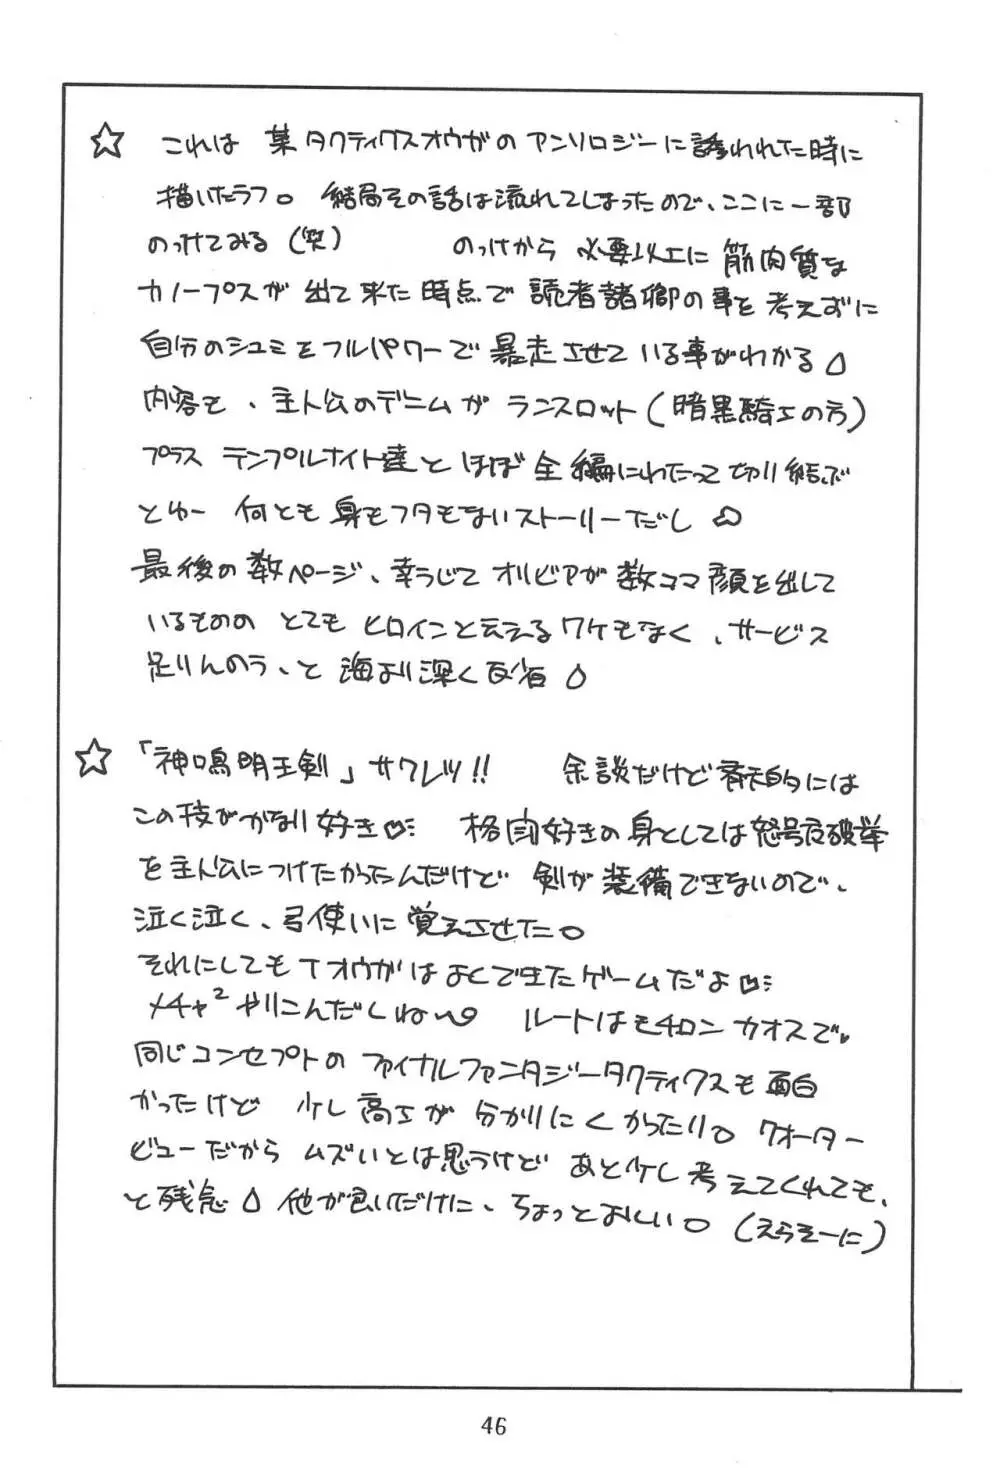 ☆ これは 某タクティクスオウガのアンソロジーに誘われた時に
描いたラフ。 結局その話は流れてしまったので、ここに一部
のっけてみる(笑) のっけから 必要以上に 筋肉質な
カノープスが 出て来た時点で 読者諸卿の事を考えずに
自分のシュミをフルパワーで 暴走させて いる事がわかる
内容も、主人公のデニムが ランスロット(暗黒騎士の方)
プラス テンプルナイト達と ほぼ全編にわたって切り結ぶ
とゆー 何とも 身もフタもないストーリーだし
最後の数ページ、辛うじて オリビアが 数コマ顔を出して
いるものの とても ヒロインと云えるワケもなく、サービス
足りんのう、と 海より深く反省
☆ 「神鳴明王剣」サクレツ!! 余談だけど 的には
この技がかなり好き 格闘好きの身としては怒号危破拳
を主人公につけたかったんだけど 剣が装備できないので、
泣く泣く、弓使いに覚えさせた。
それにしてもTオウガはよくできたゲームだよ
メチャ²やりこんだしね〜 ルートはモチロン カオスで
同じコンセプトの ファイナルファンタジータクティクスも面白
かったけど 少し高さが 分かりにくかったり。 クオーター
ビューだから ムズいとは思うけど あと少し考えてくれても、
と残念 他が良いだけに、ちょっとおしい。(えらそーに)
46